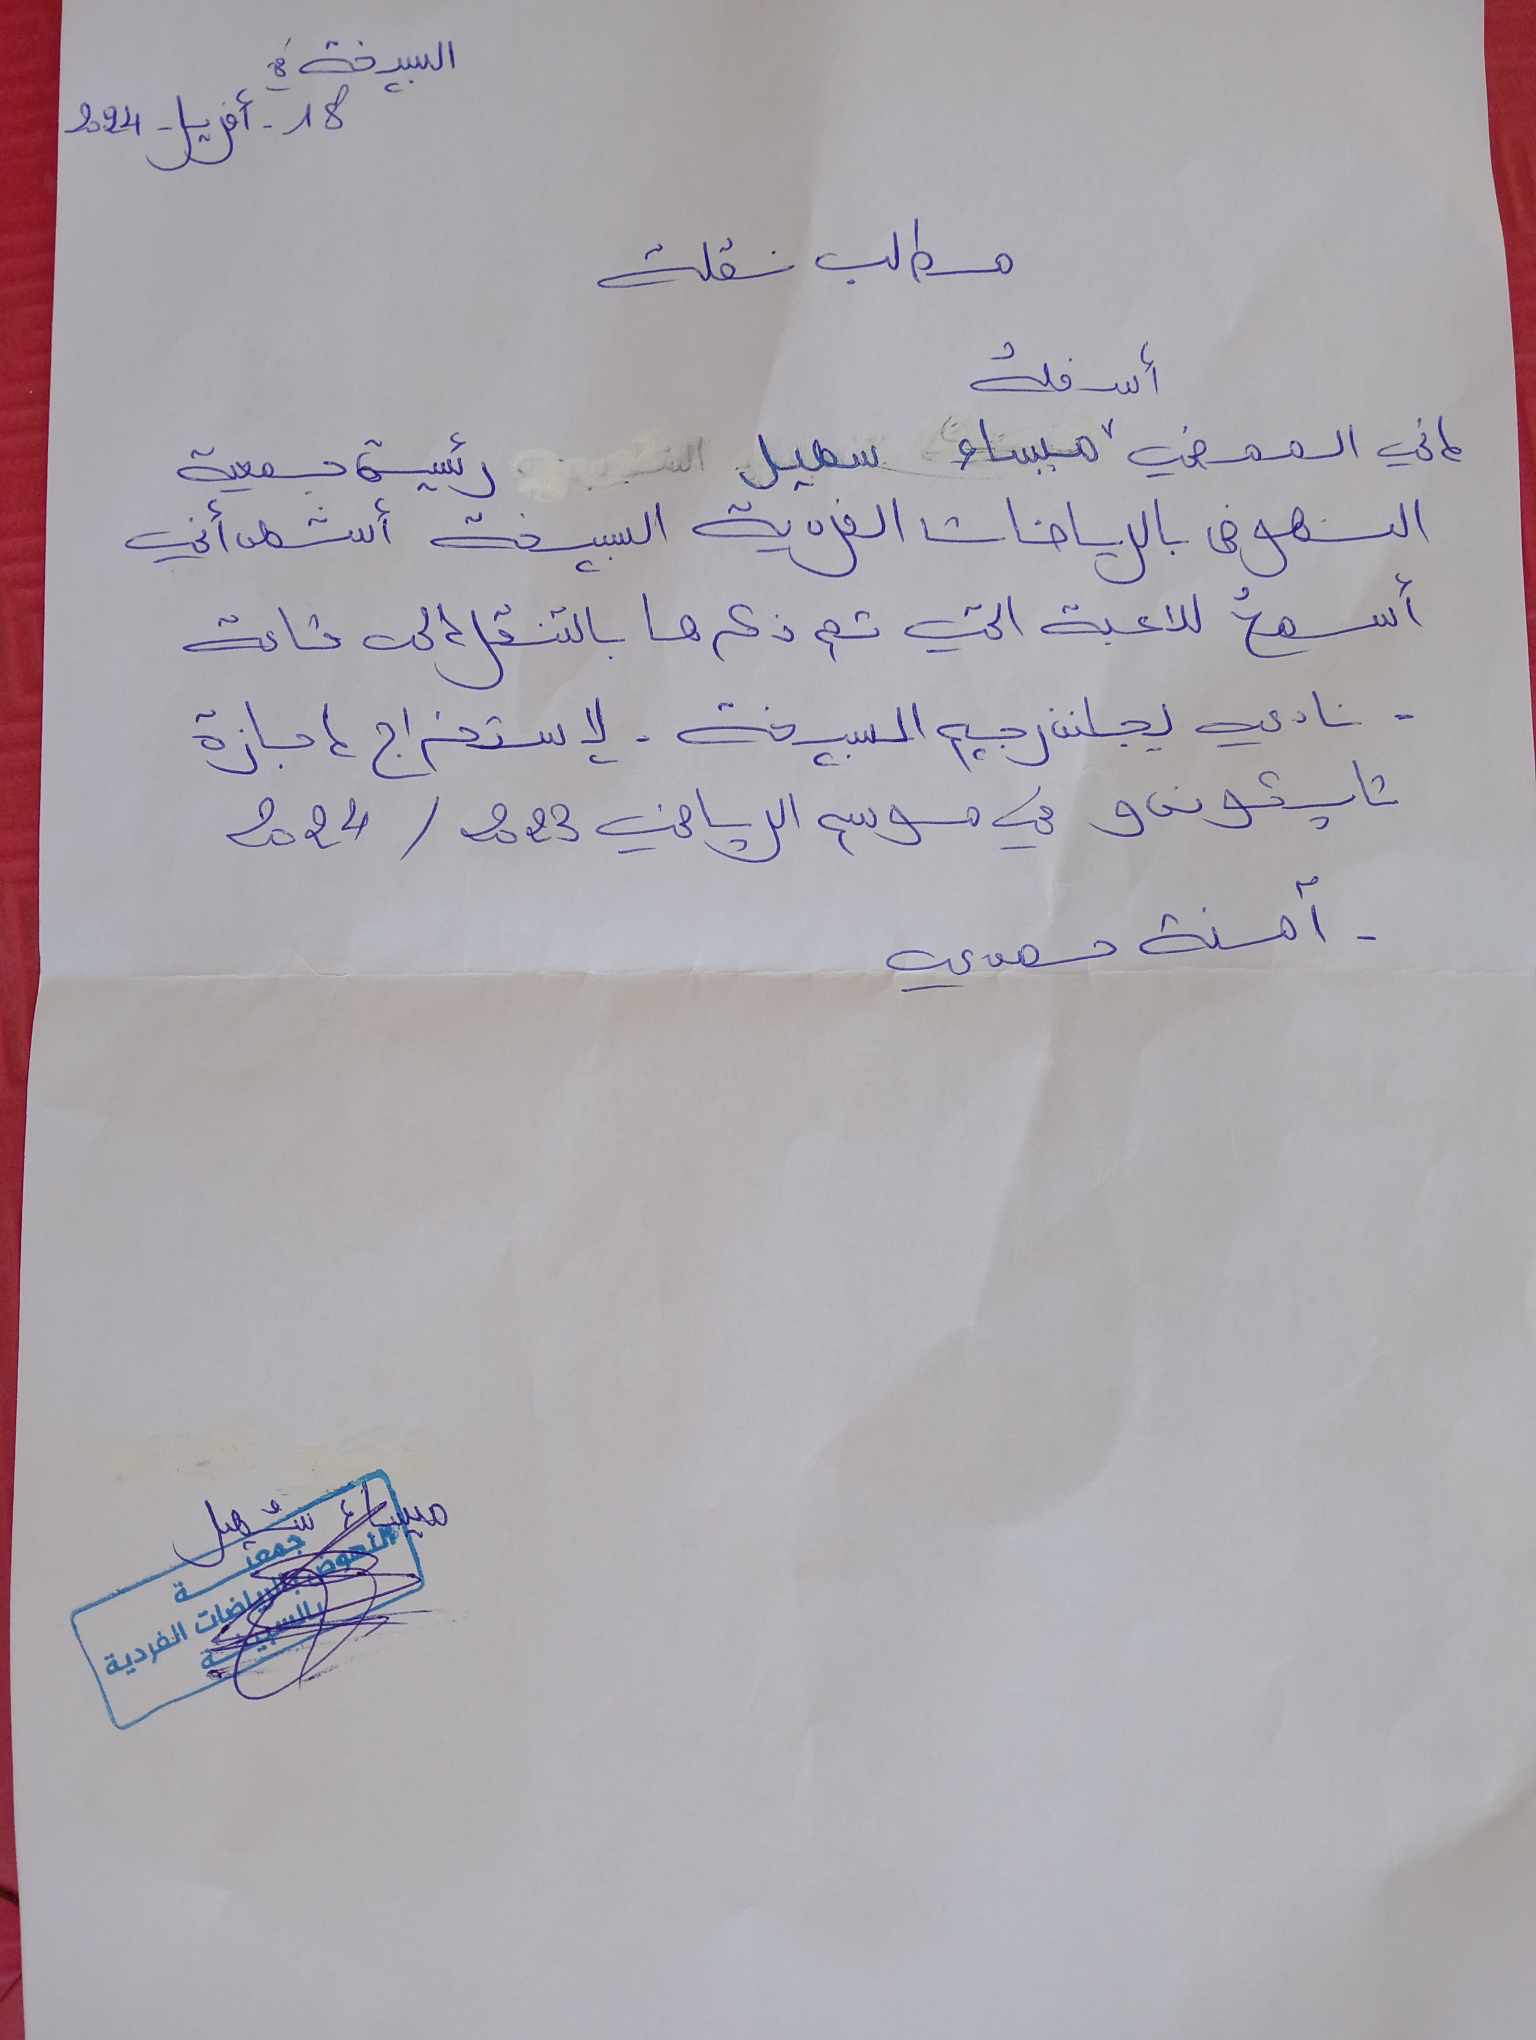 السبيخة في
18 - أفريل - 2024
مطالب نقلة
أسفلهُ
إني الممضي ميساء سهيل رئيسة جمعية
النهوض بالرياضات الفردية السبيخة أشهد أني
أسمحُ للاعبة التي تم ذكرها بالتنقل إلى قاعة
- نادي السبيخة - لاستخراج إجازة
في موسم الرياضي 2023 / 2024
- آمنة حمدي
ميساء سُهيل
جمعيــــة
النهوض بالرياضات الفردية
بالسبيخــة